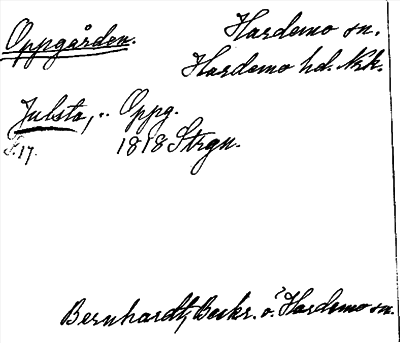 Oppgården.
Hardemo sn.
Hardemo hd. Nrk.
Julsta, .. Oppg.
S. 17. 1818 Strgn.
Bernhardt, Beskr. ö. Hardemo sn.